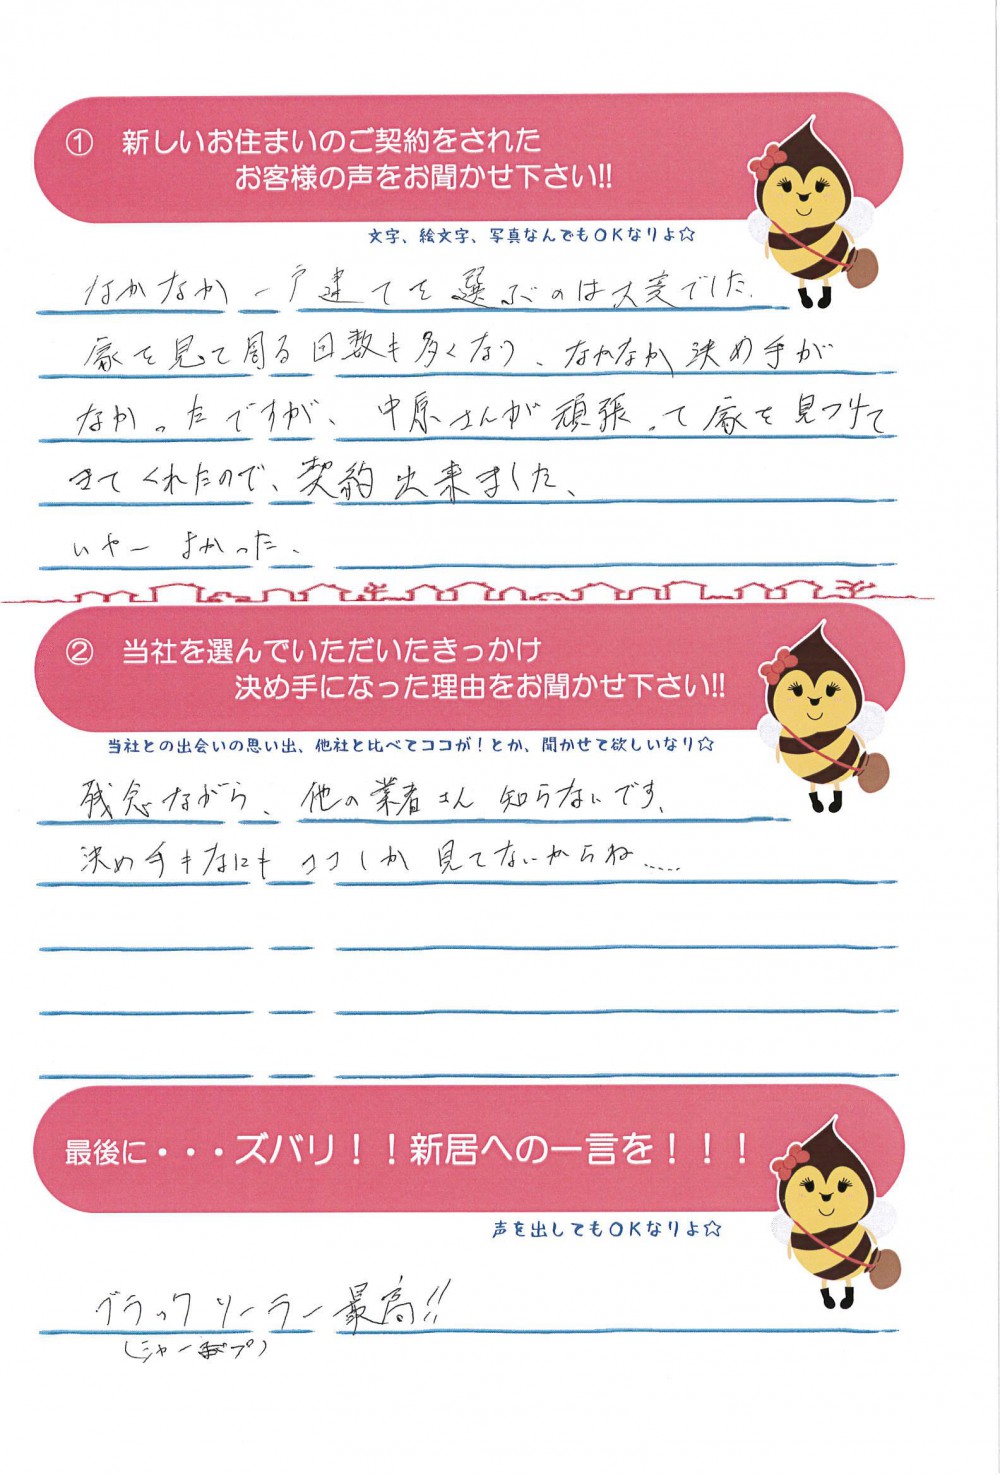 ① 新しいお住まいのご契約をされた
お客様の声をお聞かせ下さい!!
文字、絵文字、写真なんでもOKなりよ☆
なかなか一戸建てを選ぶのは大変でした。
家を見て周る回数も多くなり、なかなか決め手が
なかったですが、中原さんが頑張って家を見つけて
きてくれたので、契約出来ました、
いやー よかった、
② 当社を選んでいただいたきっかけ
決め手になった理由をお聞かせ下さい!!
当社との出会いの思い出、他社と比べてココが！とか、聞かせて欲しいなり☆
残念ながら、他の業者さん知らないです、
決め手もなにもココしか見てないからね……
最後に・・・ズバリ！！新居への一言を！！！
声を出してもOKなりよ☆
ブラックソーラー最高!!
(シャープ)